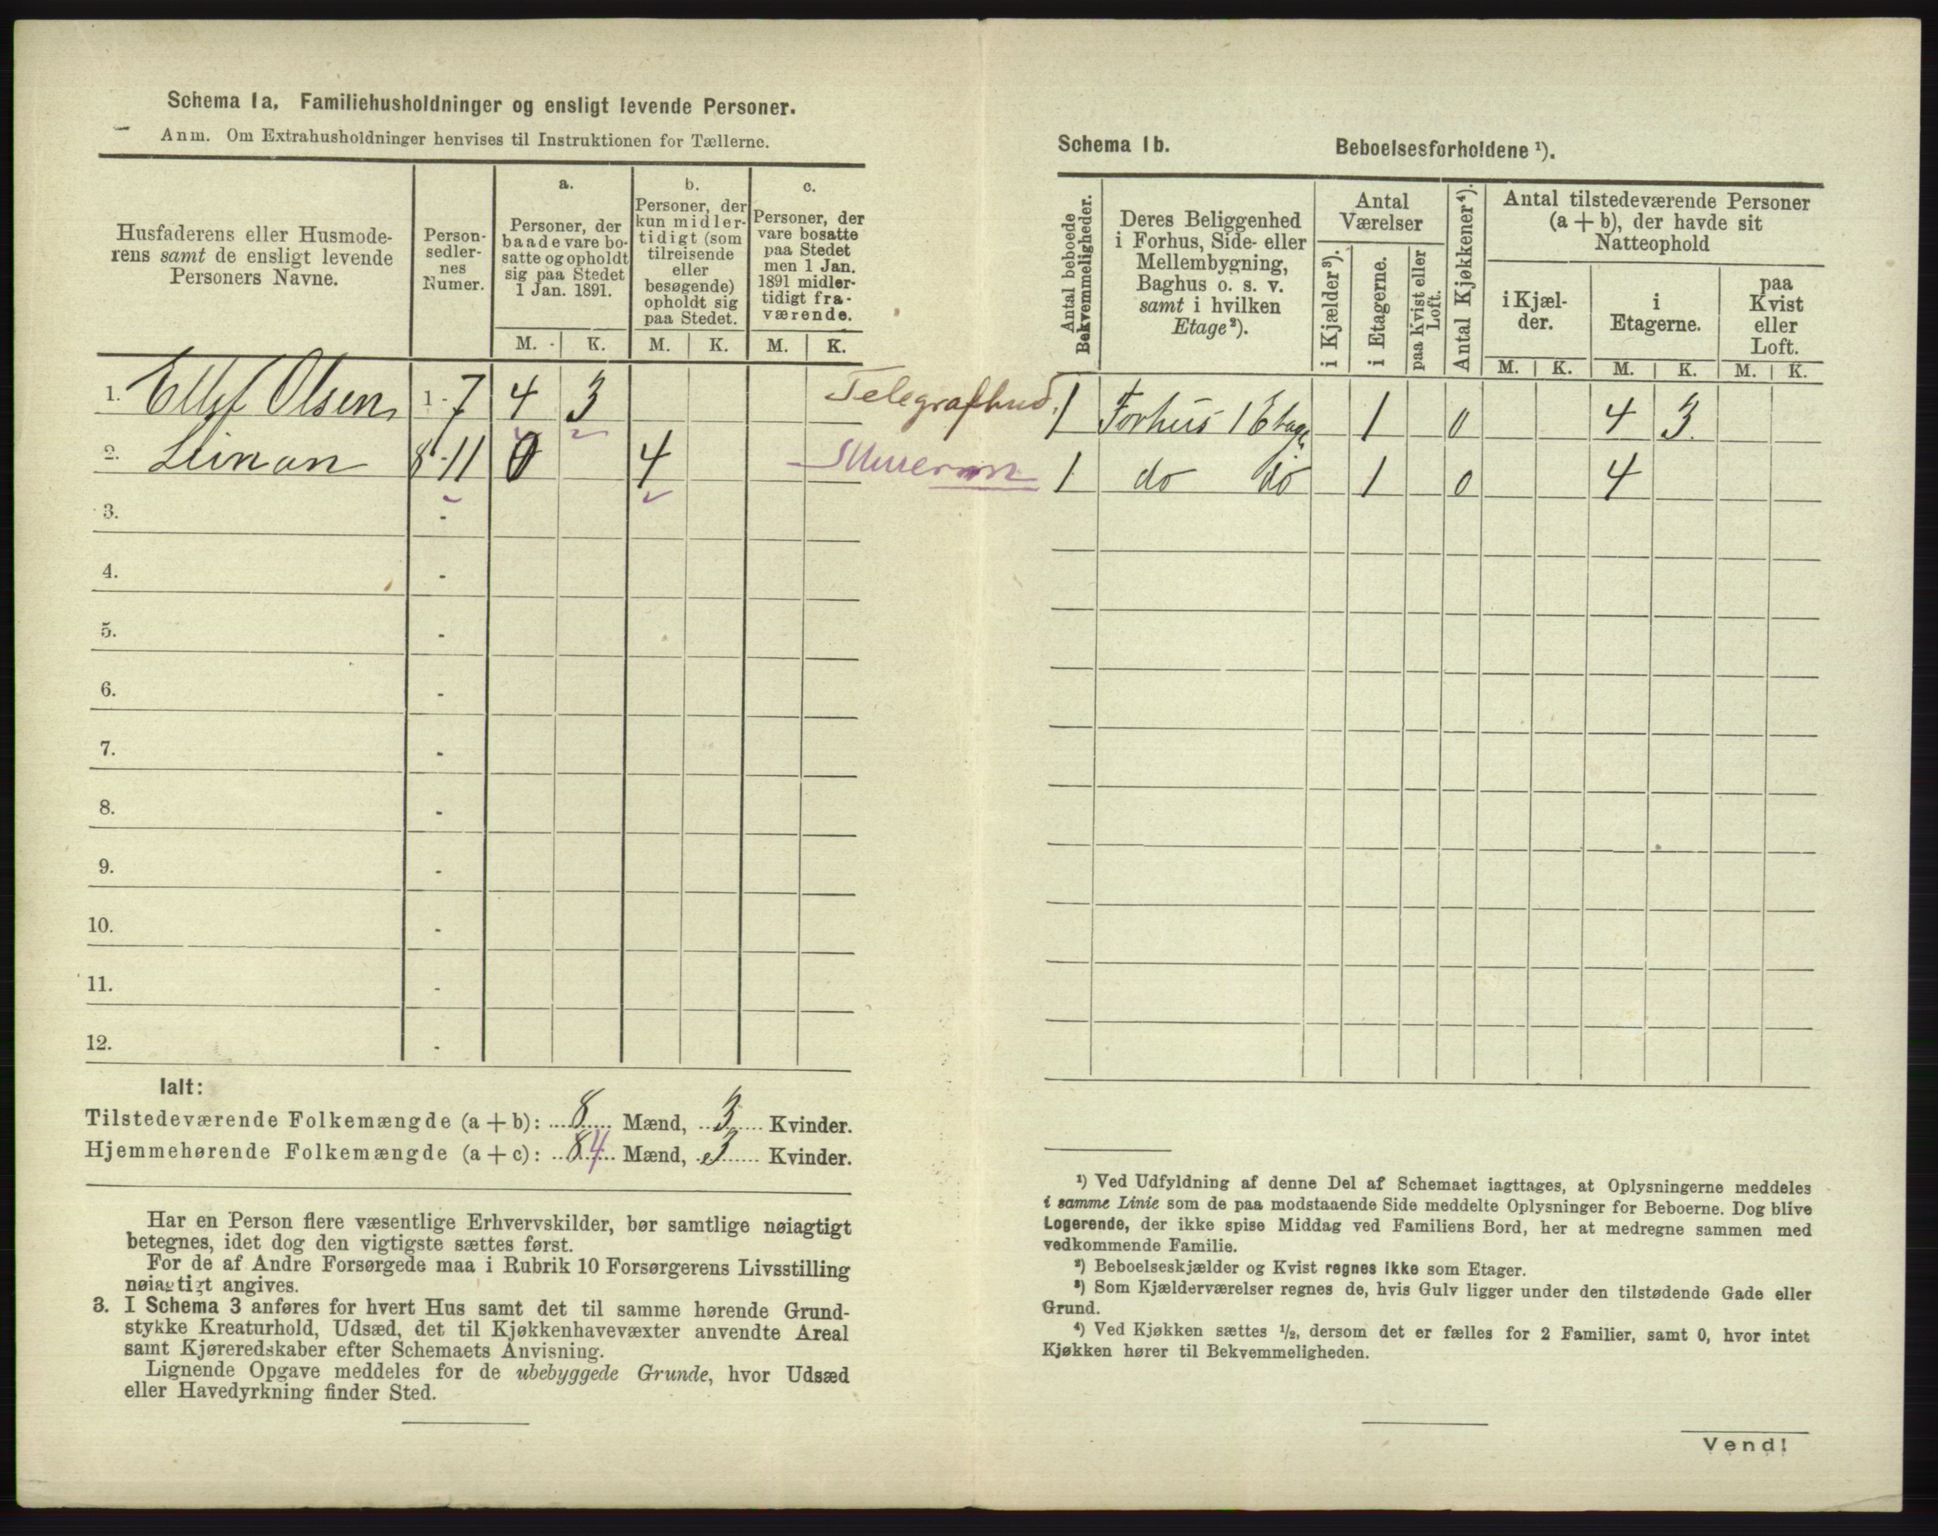 Schema 1a, Familiehusholdninger og ensligt levende Personer.
Anm. Om Extrahusholdninger henvises til Instruktionen for Tællerne.
Husfaderens eller Husmoderens samt de ensligt levende Personers Navne.
Personsedlernes Numer.
a.
Personer, der baade vare bosatte og opholdt sig paa Stedet 1 Jan. 1891.
b.
Personer, der kun midlertidigt (som tilreisende eller besøgende) opholdt sig paa Stedet.
c.
Personer, der vare bosatte paa Stedet men 1 Jan. 1891 midlertidigt fraværende.
M. K. M. K. M. K.
1. Ellef Olsen 1-7 4 3 Telegrafbud.
2. 8-11 0 4
3. -
4. -
5. -
6. -
7. -
8. -
9. -
10. -
11. -
12. -
Ialt:
Tilstedeværende Folkemængde (a + b): 8 Mænd, 3 Kvinder.
Hjemmehørende Folkemængde (a + c): 8 4 Mænd, 3 Kvinder.
Har en Person flere væsentlige Erhvervskilder, bør samtlige nøiagtigt
betegnes, idet dog den vigtigste sættes først.
For de af Andre Forsørgede maa i Rubrik 10 Forsørgerens Livsstilling
nøiagtigt angives.
3. I Schema 3 anføres for hvert Hus samt det til samme hørende Grund-
stykke Kreaturhold, Udsæd, det til Kjøkkenhavevæxter anvendte Areal
samt Kjøreredskaber efter Schemaets Anvisning.
Lignende Opgave meddeles for de ubebyggede Grunde, hvor Udsæd
eller Havedyrkning finder Sted.
Schema 1b. Beboelsesforholdene ¹).
Antal beboede Bekvemmeligheder.
Deres Beliggenhed i Forhus, Side- eller Mellembygning, Baghus o. s. v. samt i hvilken Etage ²).
Antal Værelser
i Kjælder ³).
i Etagerne.
paa Kvist eller Loft.
Antal Kjøkkener ⁴).
Antal tilstedeværende Personer (a + b), der havde sit Natteophold
i Kjælder.
i Etagerne.
paa Kvist eller Loft.
M. K. M. K. M. K.
1 Forhus 1 Etage 1 0 4 3
1 do do 1 0 4
¹) Ved Udfyldning af denne Del af Schemaet iagttages, at Oplysningerne meddeles
i samme Linie som de paa modstaaende Side meddelte Oplysninger for Beboerne. Dog blive
Logerende, der ikke spise Middag ved Familiens Bord, her at medregne sammen med
vedkommende Familie.
²) Beboelseskjælder og Kvist regnes ikke som Etager.
³) Som Kjælderværelser regnes de, hvis Gulv ligger under den tilstødende Gade eller
Grund.
⁴) Ved Kjøkken sættes ½, dersom det er fælles for 2 Familier, samt 0, hvor intet
Kjøkken hører til Bekvemmeligheden.
Vend!